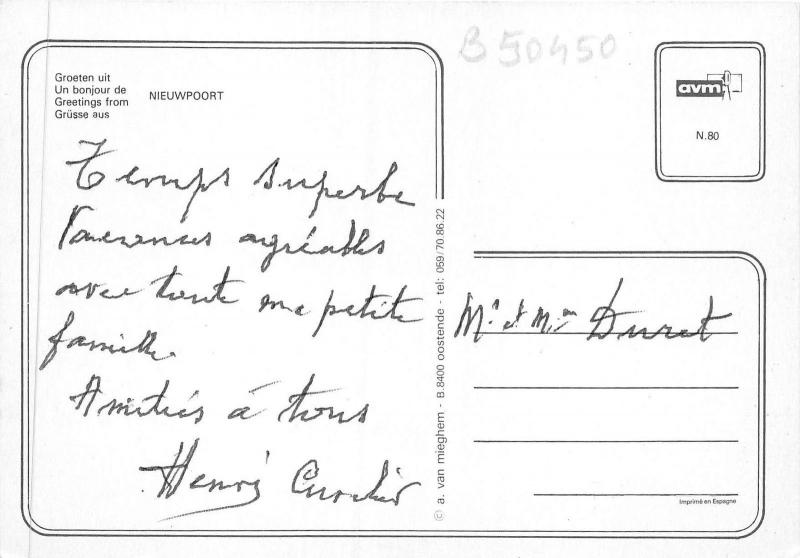 B 50450
Groeten uit
Un bonjour de
Greetings from
Grüsse aus
NIEUWPOORT
avm
N.80
Temps superbe
Vacances agréables
avec toute ma petite
famille.
Amitiés à tous
Henri
Mr et Mme Duret
© a. van mieghem - B.8400 oostende - tel: 059/70.86.22
Imprimé en Espagne